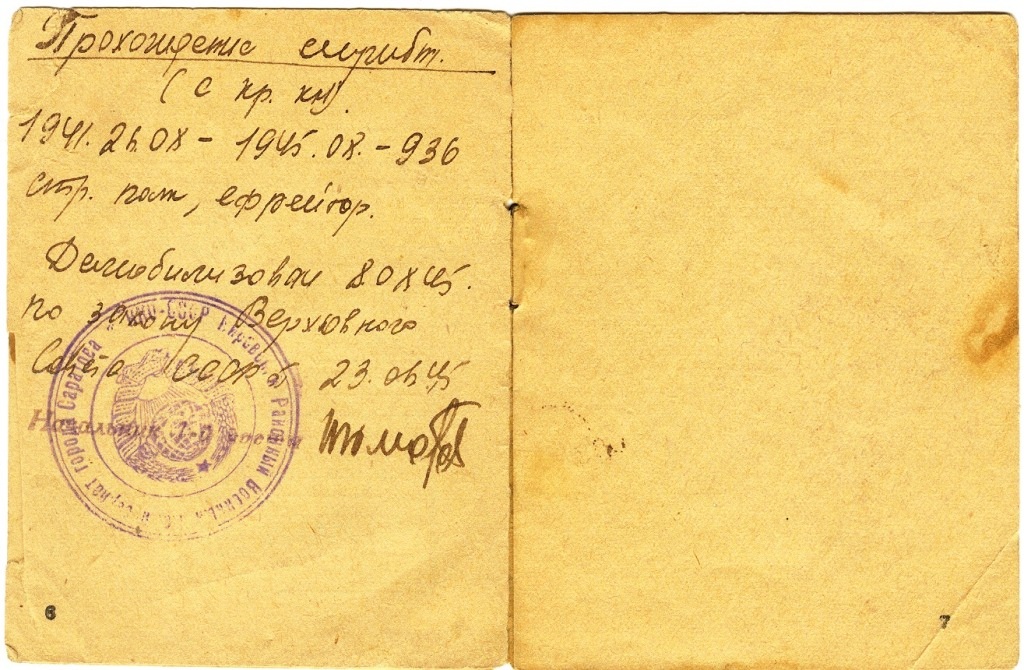 Прохождение службы.
(с кр. кн)
1941.26.08 - 1945.08. - 936
стр. полк, ефрейтор.
Демобилизован 8 0845.
по закону Верховного
Совета СССР 23.06.45
Начальник части
НКО-СССР Кировский Районный Военный Комиссариат Города Саратова
6
7